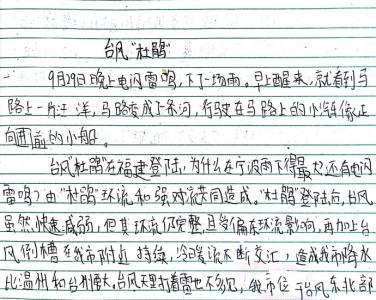 台风"杜鹃"
9月29日晚上电闪雷鸣,下了一场雨。早上醒来,就看到马
路上一片汪洋,马路变成了条河,行驶在马路上的小汽车像正
向前的小船。
台风"杜鹃"在福建登陆,为什么在宁波雨下得最大还有电闪
雷鸣?由"杜鹃"环流和强对流共同造成。"杜鹃"登陆后,台风
虽然快速减弱,但其环流仍完整,且受偏东环流影响,再加上台
风倒槽在我市附近持续,冷暖流不断交汇,造成我市降水
比温州和台州大,台风天里打着雷也不多见,我市位于台风东北部